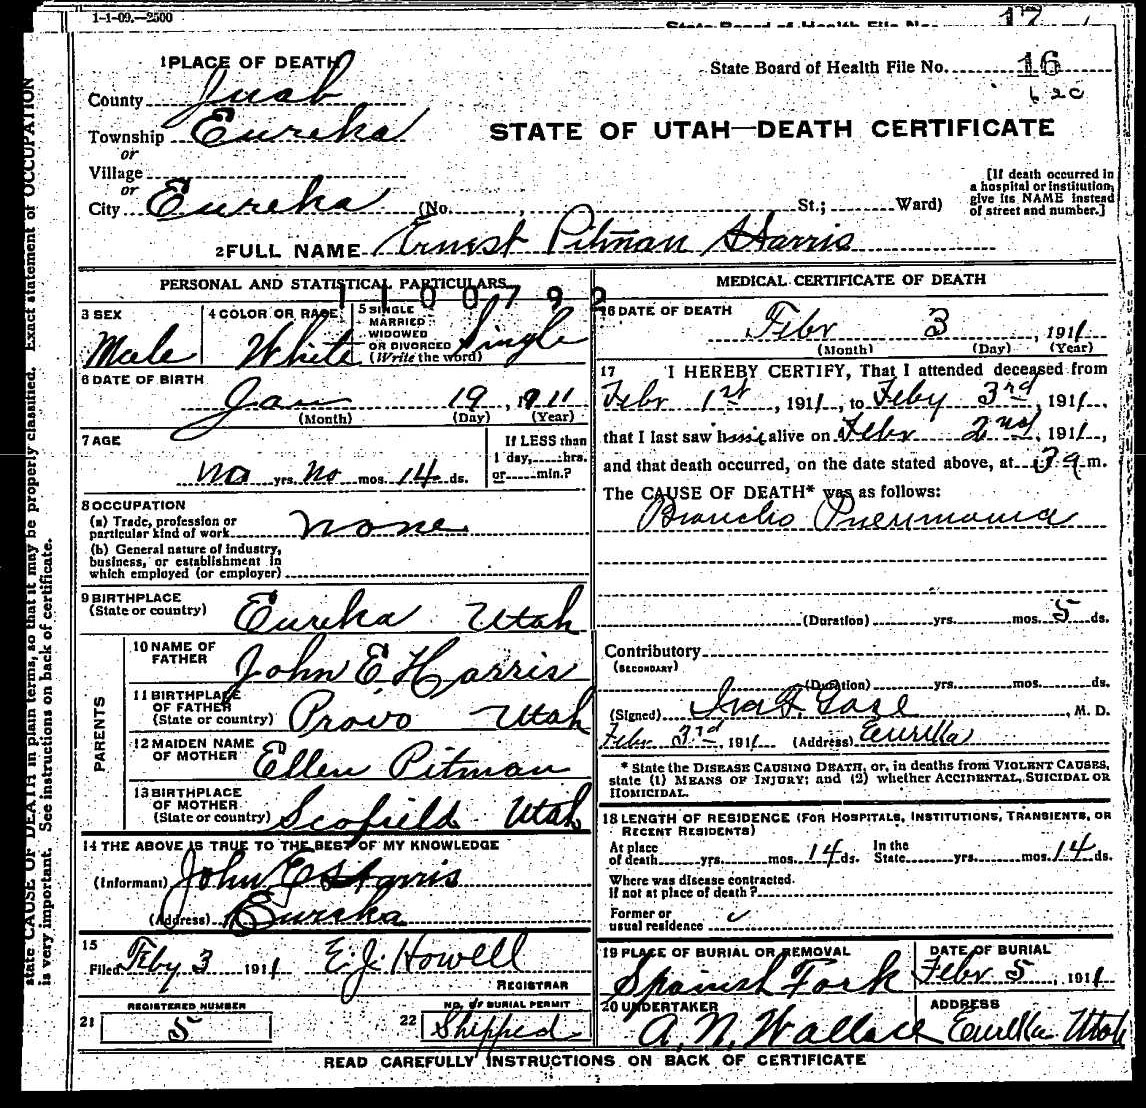 1-1-09.—2500
State Board of Health File No. 17
1 PLACE OF DEATH
State Board of Health File No. 16
County Juab
Township Eureka
or
Village
or
City Eureka (No. , St.; Ward)
STATE OF UTAH—DEATH CERTIFICATE
[If death occurred in
a hospital or institution,
give its NAME instead
of street and number.]
2 FULL NAME Ernest Pitman Harris
PERSONAL AND STATISTICAL PARTICULARS
1100792
3 SEX Male
4 COLOR OR RACE White
5 SINGLE
MARRIED
WIDOWED
OR DIVORCED
(Write the word) Single
6 DATE OF BIRTH
Jan 19, 1911
(Month) (Day) (Year)
7 AGE
no yrs. no mos. 14 ds.
If LESS than
1 day, hrs.
or min.?
8 OCCUPATION
(a) Trade, profession or
particular kind of work none
(b) General nature of industry,
business, or establishment in
which employed (or employer)
9 BIRTHPLACE
(State or country) Eureka Utah
PARENTS
10 NAME OF
FATHER John E. Harris
11 BIRTHPLACE
OF FATHER
(State or country) Provo Utah
12 MAIDEN NAME
OF MOTHER Ellen Pitman
13 BIRTHPLACE
OF MOTHER
(State or country) Scofield Utah
14 THE ABOVE IS TRUE TO THE BEST OF MY KNOWLEDGE
(Informant) John E Harris
(Address) Eureka
15
Filed Feby 3 1911 E. J. Howell
REGISTRAR
REGISTERED NUMBER
21 5
NO. OF BURIAL PERMIT
22 Shipped
MEDICAL CERTIFICATE OF DEATH
16 DATE OF DEATH
Febr 3, 1911
(Month) (Day) (Year)
17 I HEREBY CERTIFY, That I attended deceased from
Febr 1st, 1911, to Feby 3rd, 1911,
that I last saw him alive on Febr 2nd, 1911,
and that death occurred, on the date stated above, at 3 a m.
The CAUSE OF DEATH* was as follows:
Broncho Pneumonia
(Duration) yrs. mos. 5 ds.
Contributory
(SECONDARY)
(Duration) yrs. mos. ds.
(Signed) M. D.
Febr 3rd, 1911 (Address) Eureka
* State the DISEASE CAUSING DEATH, or, in deaths from VIOLENT CAUSES,
state (1) MEANS OF INJURY; and (2) whether ACCIDENTAL, SUICIDAL OR
HOMICIDAL.
18 LENGTH OF RESIDENCE (FOR HOSPITALS, INSTITUTIONS, TRANSIENTS, OR
RECENT RESIDENTS)
At place
of death yrs. mos. 14 ds. In the
State yrs. mos. 14 ds.
Where was disease contracted.
If not at place of death?
Former or
usual residence
19 PLACE OF BURIAL OR REMOVAL
Spanish Fork
DATE OF BURIAL
Febr 5, 1911
20 UNDERTAKER
A. N. Wallace
ADDRESS
Eureka Utah
READ CAREFULLY INSTRUCTIONS ON BACK OF CERTIFICATE
state CAUSE OF DEATH in plain terms, so that it may be properly classified. Exact statement of OCCUPATION
is very important. See instructions on back of certificate.